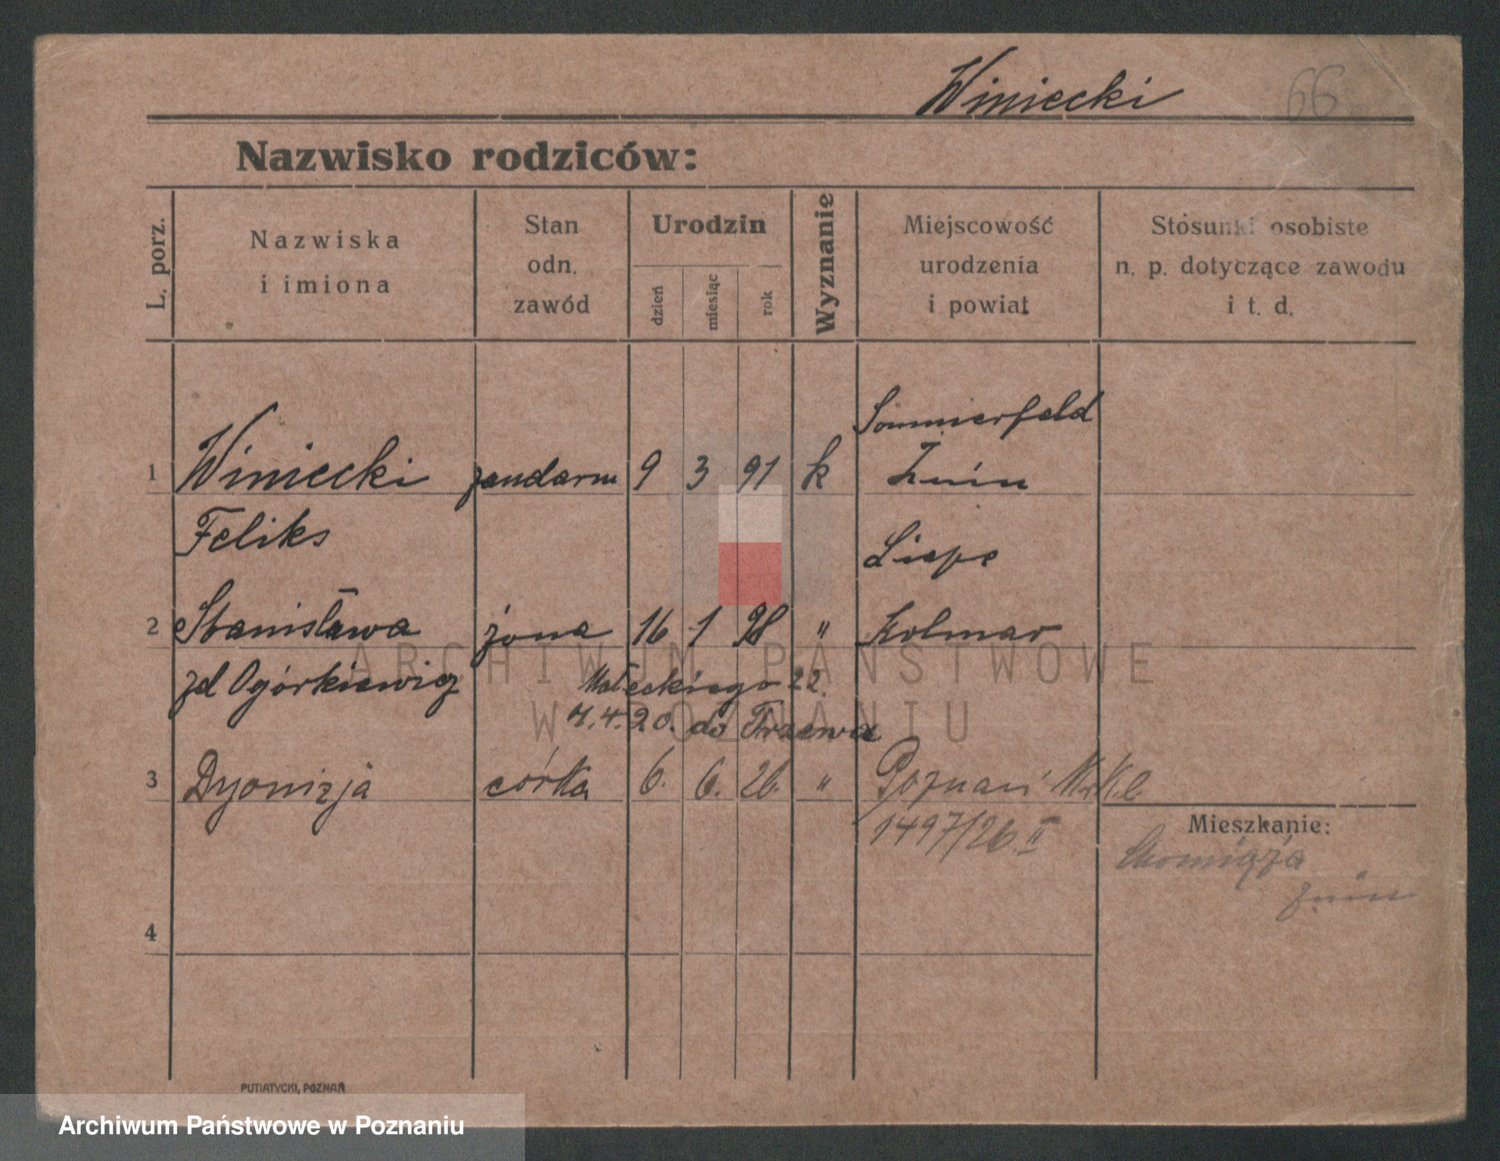 Winiecki 66
Nazwisko rodziców:
L. porz.
Nazwiska
i imiona
Stan
odn.
zawód
Urodzin
dzień
miesiąc
rok
Wyznanie
Miejscowość
urodzenia
i powiat
Stosunki osobiste
n. p. dotyczące zawodu
i t. d.
Sommerfeld
1 Winiecki żandarm 9 3 91 k Żnin
Feliks
Liepe
2 Stanisława żona 16 1 98 " Kolmar
zd Ogórkiewicz
Małeckiego 22.
7.4.20. do
3 Dyonizja córka 6. 6. 26. " Poznań
1497/26 II
Mieszkanie:
żnin
4
PUTIATYCKI, POZNAŃ
ARCHIWUM PAŃSTWOWE
W POZNANIU
Archiwum Państwowe w Poznaniu